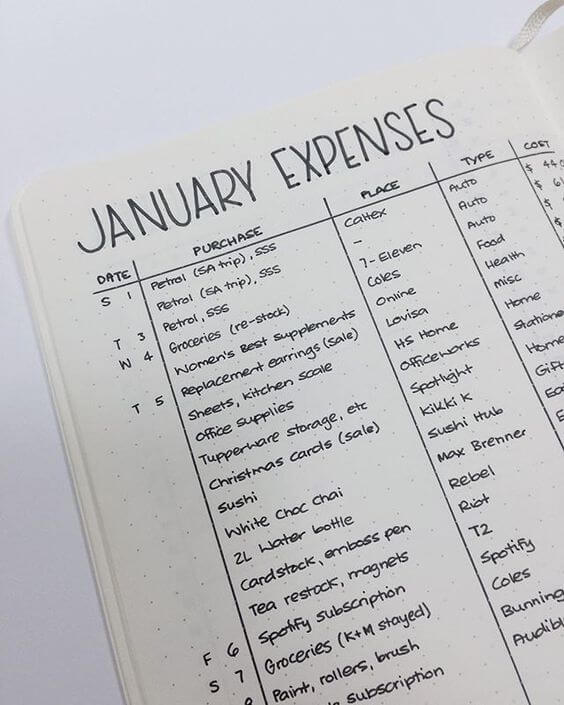 JANUARY EXPENSES
DATE PURCHASE PLACE TYPE COST
S 1 Petrol (SA trip), SSS Caltex Auto $ 44
Petrol (SA trip), SSS – Auto $ 6
T 3 Petrol, SSS 7-Eleven Auto $
W 4 Groceries (re-stock) Coles Food $
Women's Best Supplements Online Health
T 5 Replacement earrings (sale) Lovisa misc
Sheets, kitchen scale HS Home Home
Office supplies Officeworks Statione
Tupperware storage, etc Spotlight Home
Christmas cards (sale) Kikki K Gift
Sushi Sushi Hub
White choc chai Max Brenner
2L water bottle Rebel
Cardstock, emboss pen Riot
Tea restock, magnets T2
F 6 Spotify subscription Spotify
S 7 Groceries (K+M stayed) Coles
8 Paint, rollers, brush Bunning
subscription Audibl